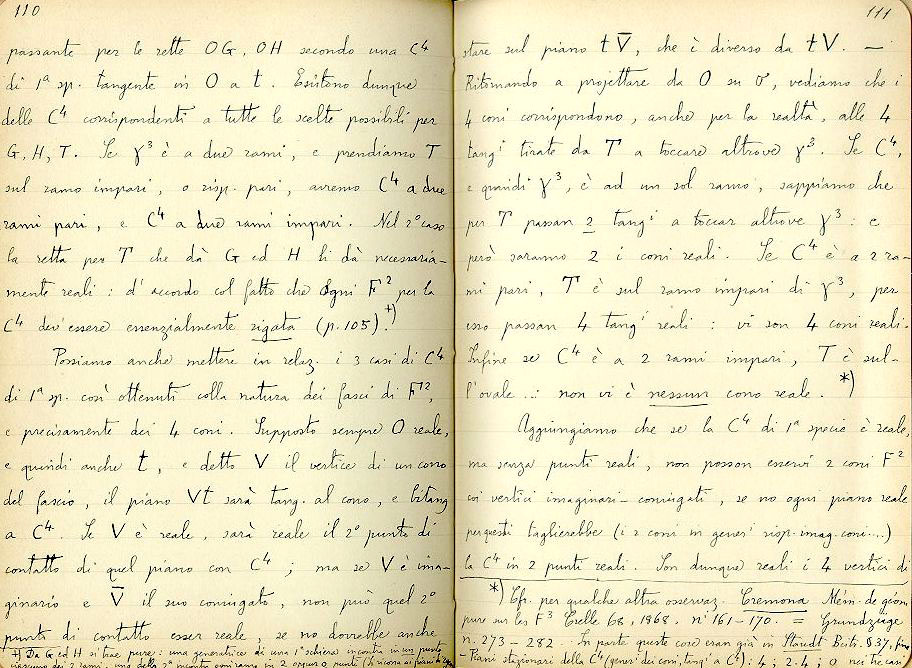 110
passante per le rette OG, OH secondo una C⁴
di 1ª sp. tangente in O a t. Esistono dunque
delle C⁴ corrispondenti a tutte le scelte possibili per
G, H, T. Se γ³ è a due rami, e prendiamo T
sul ramo impari, o risp. pari, avremo C⁴ a due
rami pari, e C⁴ a due rami impari. Nel 2º caso
la retta per T che dà G ed H li dà necessaria-
mente reali: d'accordo col fatto che ogni F² per la
C⁴ dev'essere essenzialmente rigata (p. 105).⁺⁾
Possiamo anche mettere in relaz. i 3 casi di C⁴
di 1ª sp. così ottenuti colla natura dei fasci di F²,
e precisamente dei 4 coni. Supposto sempre O reale,
e quindi anche t, e detto V il vertice di un cono
del fascio, il piano Vt sarà tang. al cono, e bitang
a C⁴. Se V è reale, sarà reale il 2º punto di
contatto di quel piano con C⁴; ma se V è ima-
ginario e V̅ il suo coniugato, non può quel 2º
punto di contatto esser reale, se no dovrebbe anche
+) Da G ed H si trae pure: una generatrice di una 1ª schiera incontra in un punto
111
stare sul piano tV̅, che è diverso da tV. —
Ritornando a projettare da O su σ, vediamo che i
4 coni corrispondono, anche per la realtà, alle 4
tangⁱ tirate da T a toccare altrove γ³. Se C⁴,
e quindi γ³, è ad un sol ramo, sappiamo che
per T passan 2 tangⁱ a toccar altrove γ³: e
però saranno 2 i coni reali. Se C⁴ è a 2 ra-
mi pari, T è sul ramo impari di γ³, per
esso passan 4 tangⁱ reali: vi son 4 coni reali.
Infine se C⁴ è a 2 rami impari, T è sul-
l'ovale ..: non vi è nessun cono reale. *)
Aggiungiamo che se la C⁴ di 1ª specie è reale,
ma senza punti reali, non posson esservi 2 coni F²
coi vertici imaginari-coniugati, se no ogni piano reale
per questi taglierebbe (i 2 coni in genⁱ risp. imag. coni...)
la C⁴ in 2 punti reali. Son dunque reali i 4 vertici di
*) Cfr. per qualche altra osservaz. Cremona Mém. de géom.
pure sur les F³ Crelle 68, 1868. nⁱ 161-170. = Grundzüge
n. 273-282. In parte queste cose eran già in Staudt Beitr. §37,
Piani stazionari della C⁴